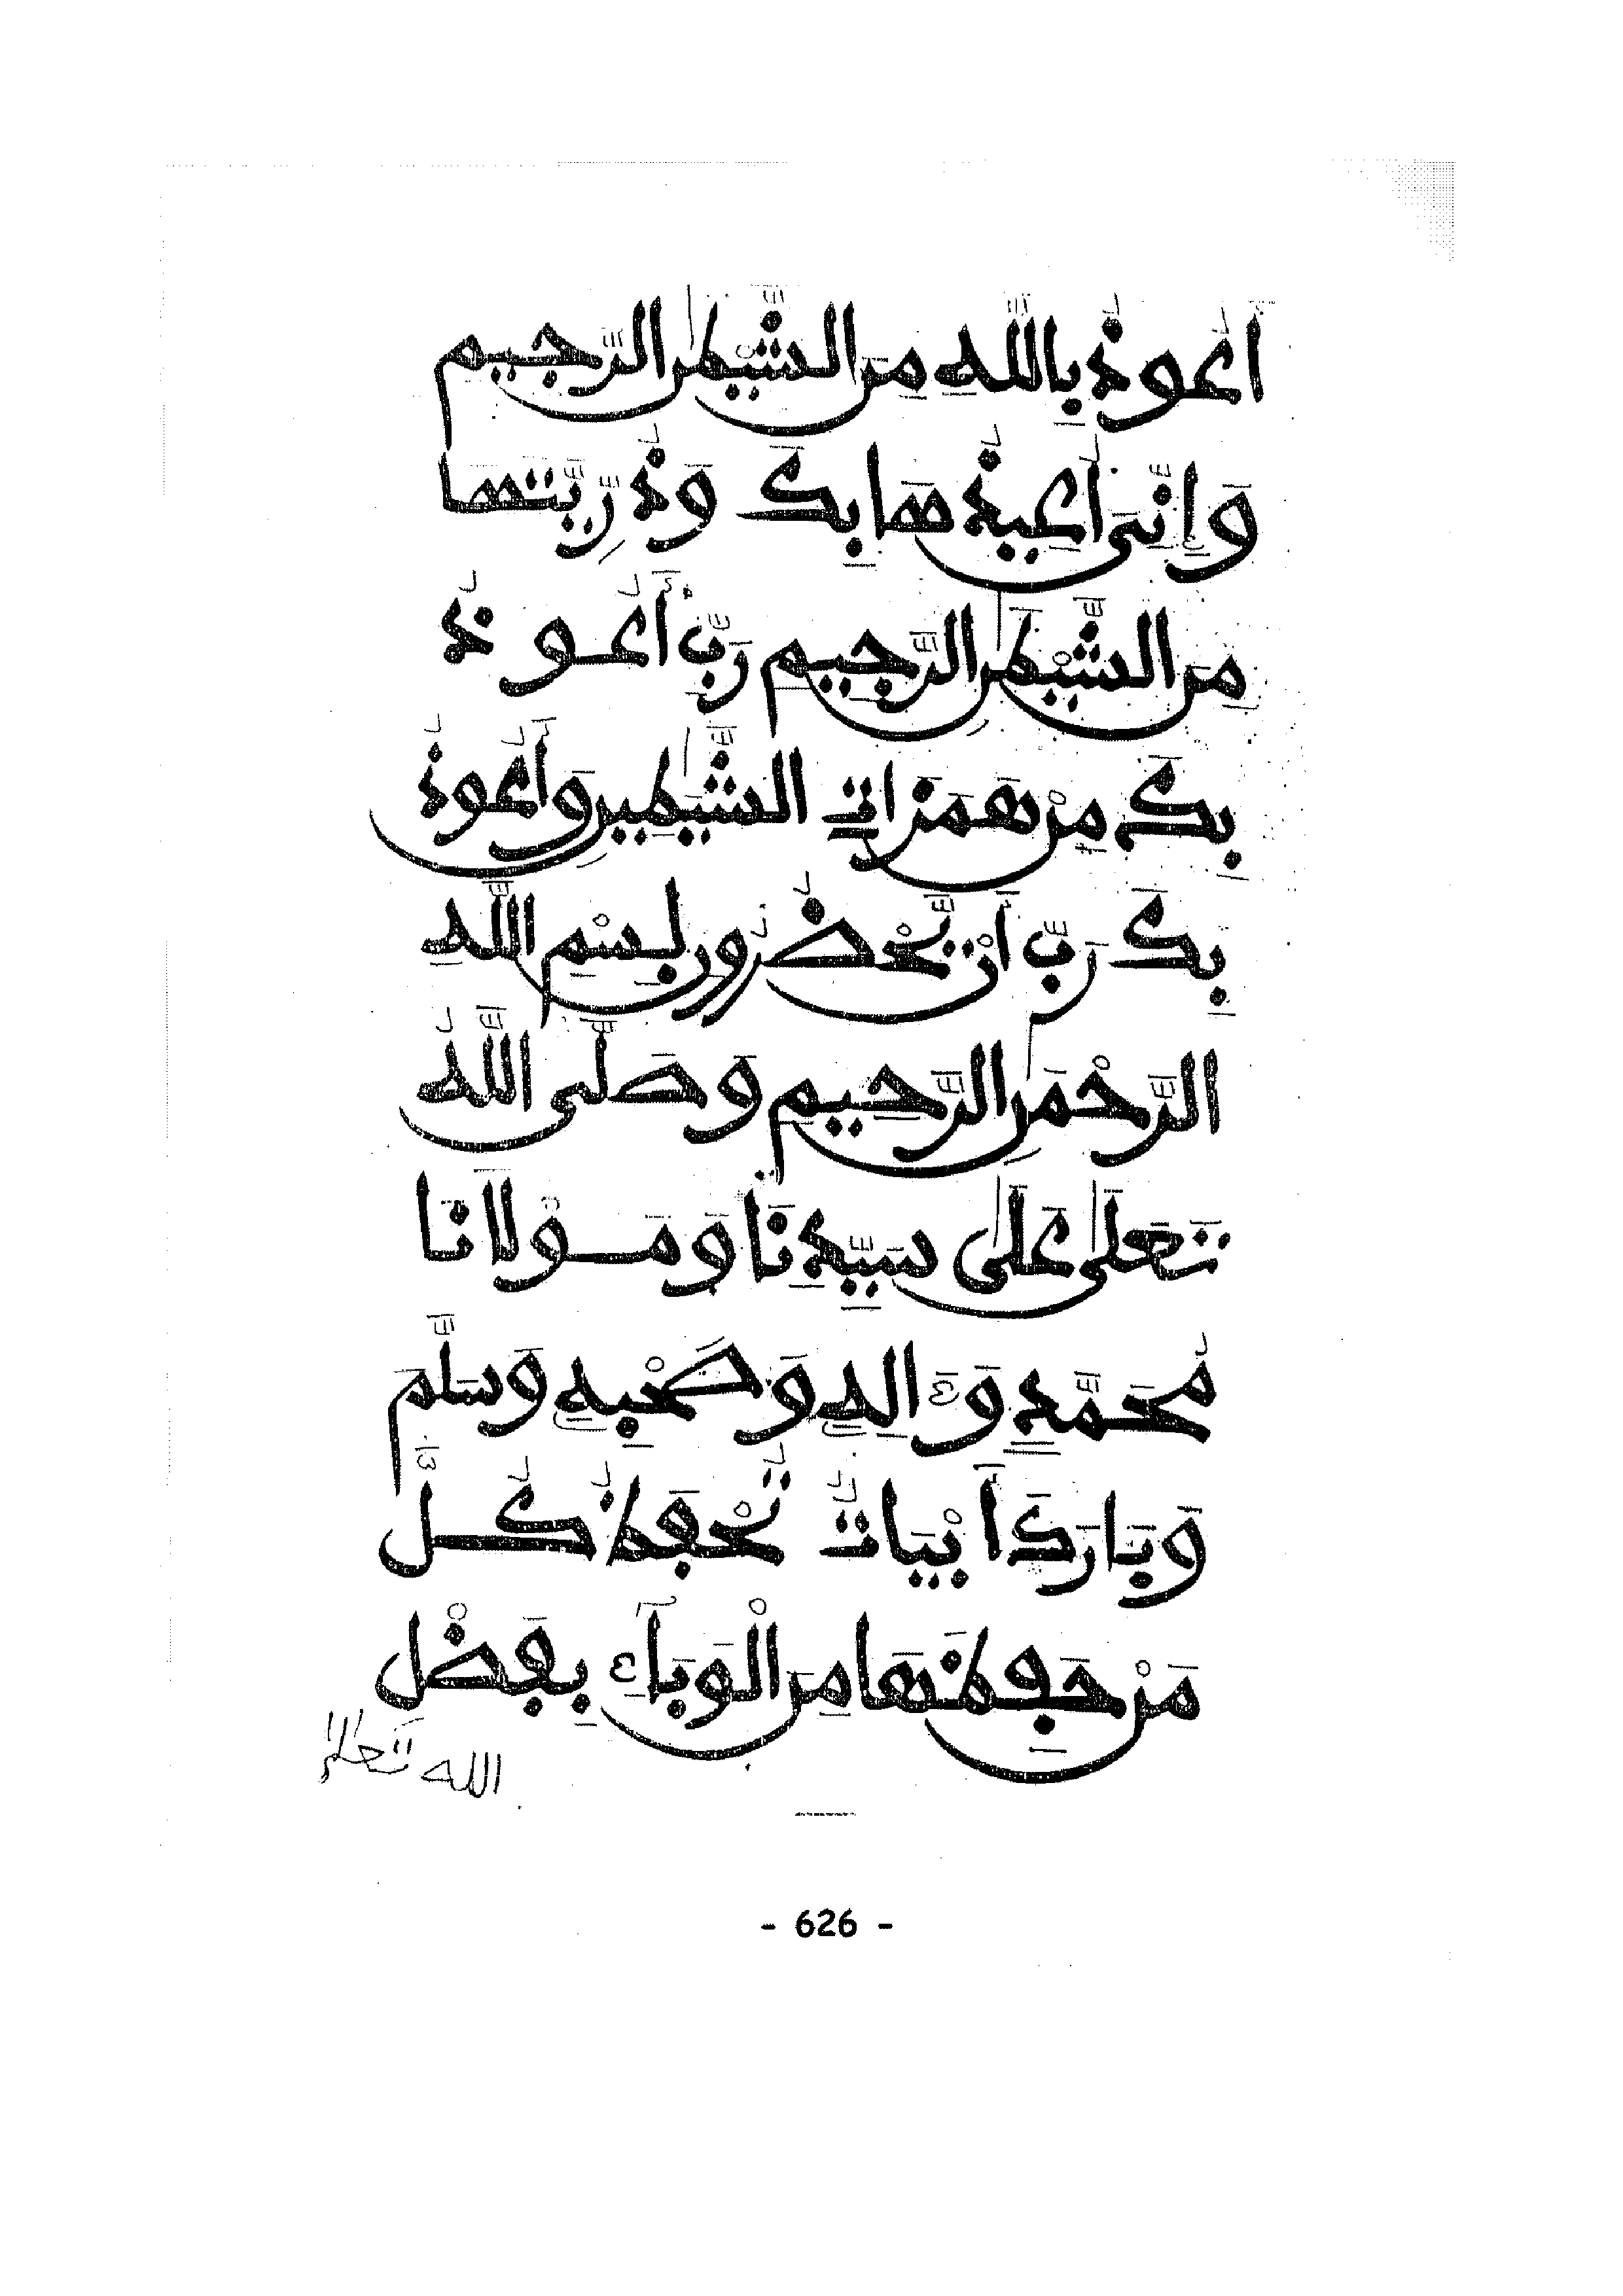 أَعُوذُ بِاللَّهِ مِنَ الشَّيْطَٰنِ الرَّجِيمِ
وَإِنِّيَ أُعِيذُهَا بِكَ وَذُرِّيَّتَهَا
مِنَ الشَّيْطَٰنِ الرَّجِيمِ رَبِّ أَعُوذُ
بِكَ مِنْ هَمَزَاتِ الشَّيَٰطِينِ وَأَعُوذُ
بِكَ رَبِّ أَنْ يَّحْضُرُونِ بِسْمِ اللَّهِ
الرَّحْمَٰنِ الرَّحِيمِ وَصَلَّى اللَّهُ
تَعَلَىٰ عَلَىٰ سَيِّدِنَا وَمَوْلَانَا
مُحَمَّدٍ وَءَالِهِ وَصَحْبِهِ وَسَلَّمَ
وَبَارَكَ أَبْيَاتٌ تَحْفَظُ كُلَّ
مَنْ حَفِظَهَا مِنَ الْوَبَآءِ بِفَضْلِ
الله تَعَلىٰ
- 626 -